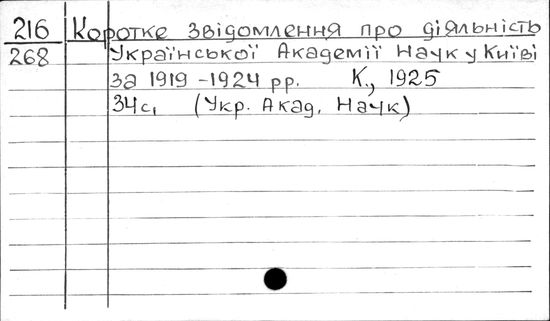 216 Коротке звідомлення про діяльність
268 Української Академії Наук у Київі
за 1919-1924 рр. К., 1925
34с, (Укр. Акад. Наук)